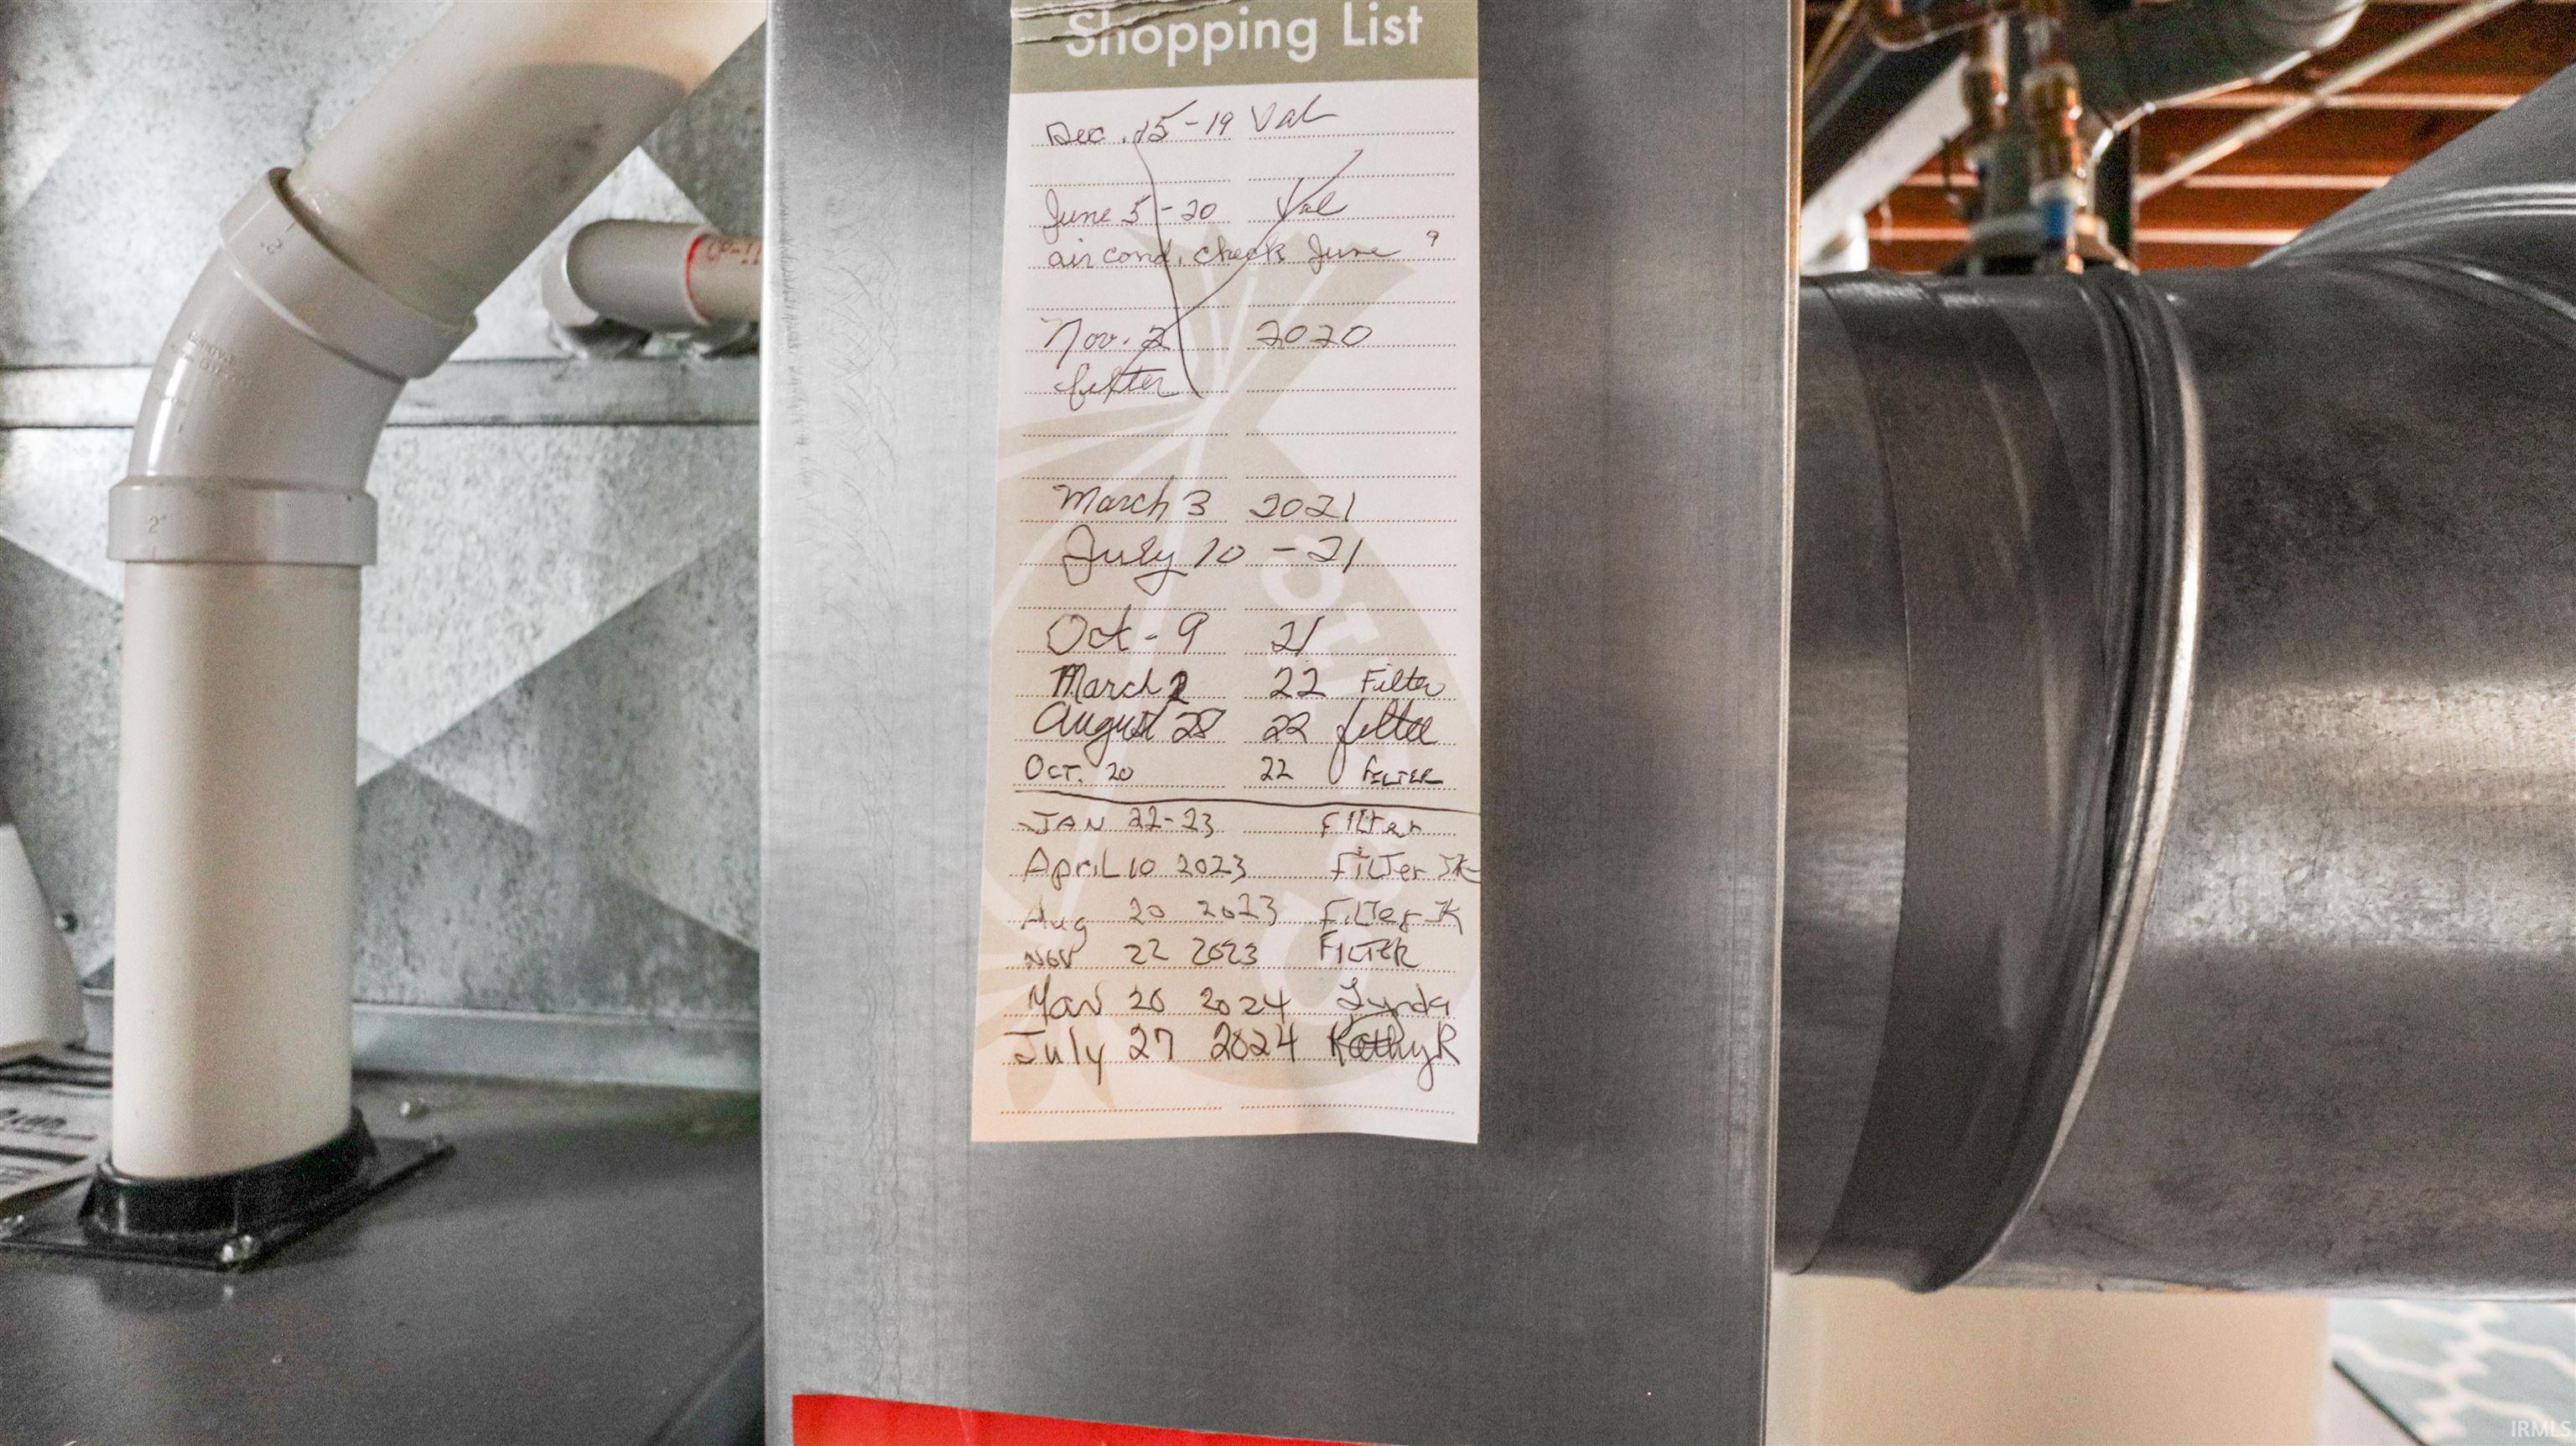 Shopping List
Dec. 15-19 Val
June 5-20 Val
air cond. check June 9
Nov. 2 2020
filter
March 3 2021
July 10 - 21
Oct - 9 21
March 2 22 Filter
August 28 22 filter
Oct. 20 22 FILTER
JAN 22-23 Filter
April 10 2023 Filter JK
Aug 20 2023 Filter JK
Nov 22 2023 FILTER
Mar 20 2024 Lynda
July 27 2024 Kathy R
2"
IRMLS